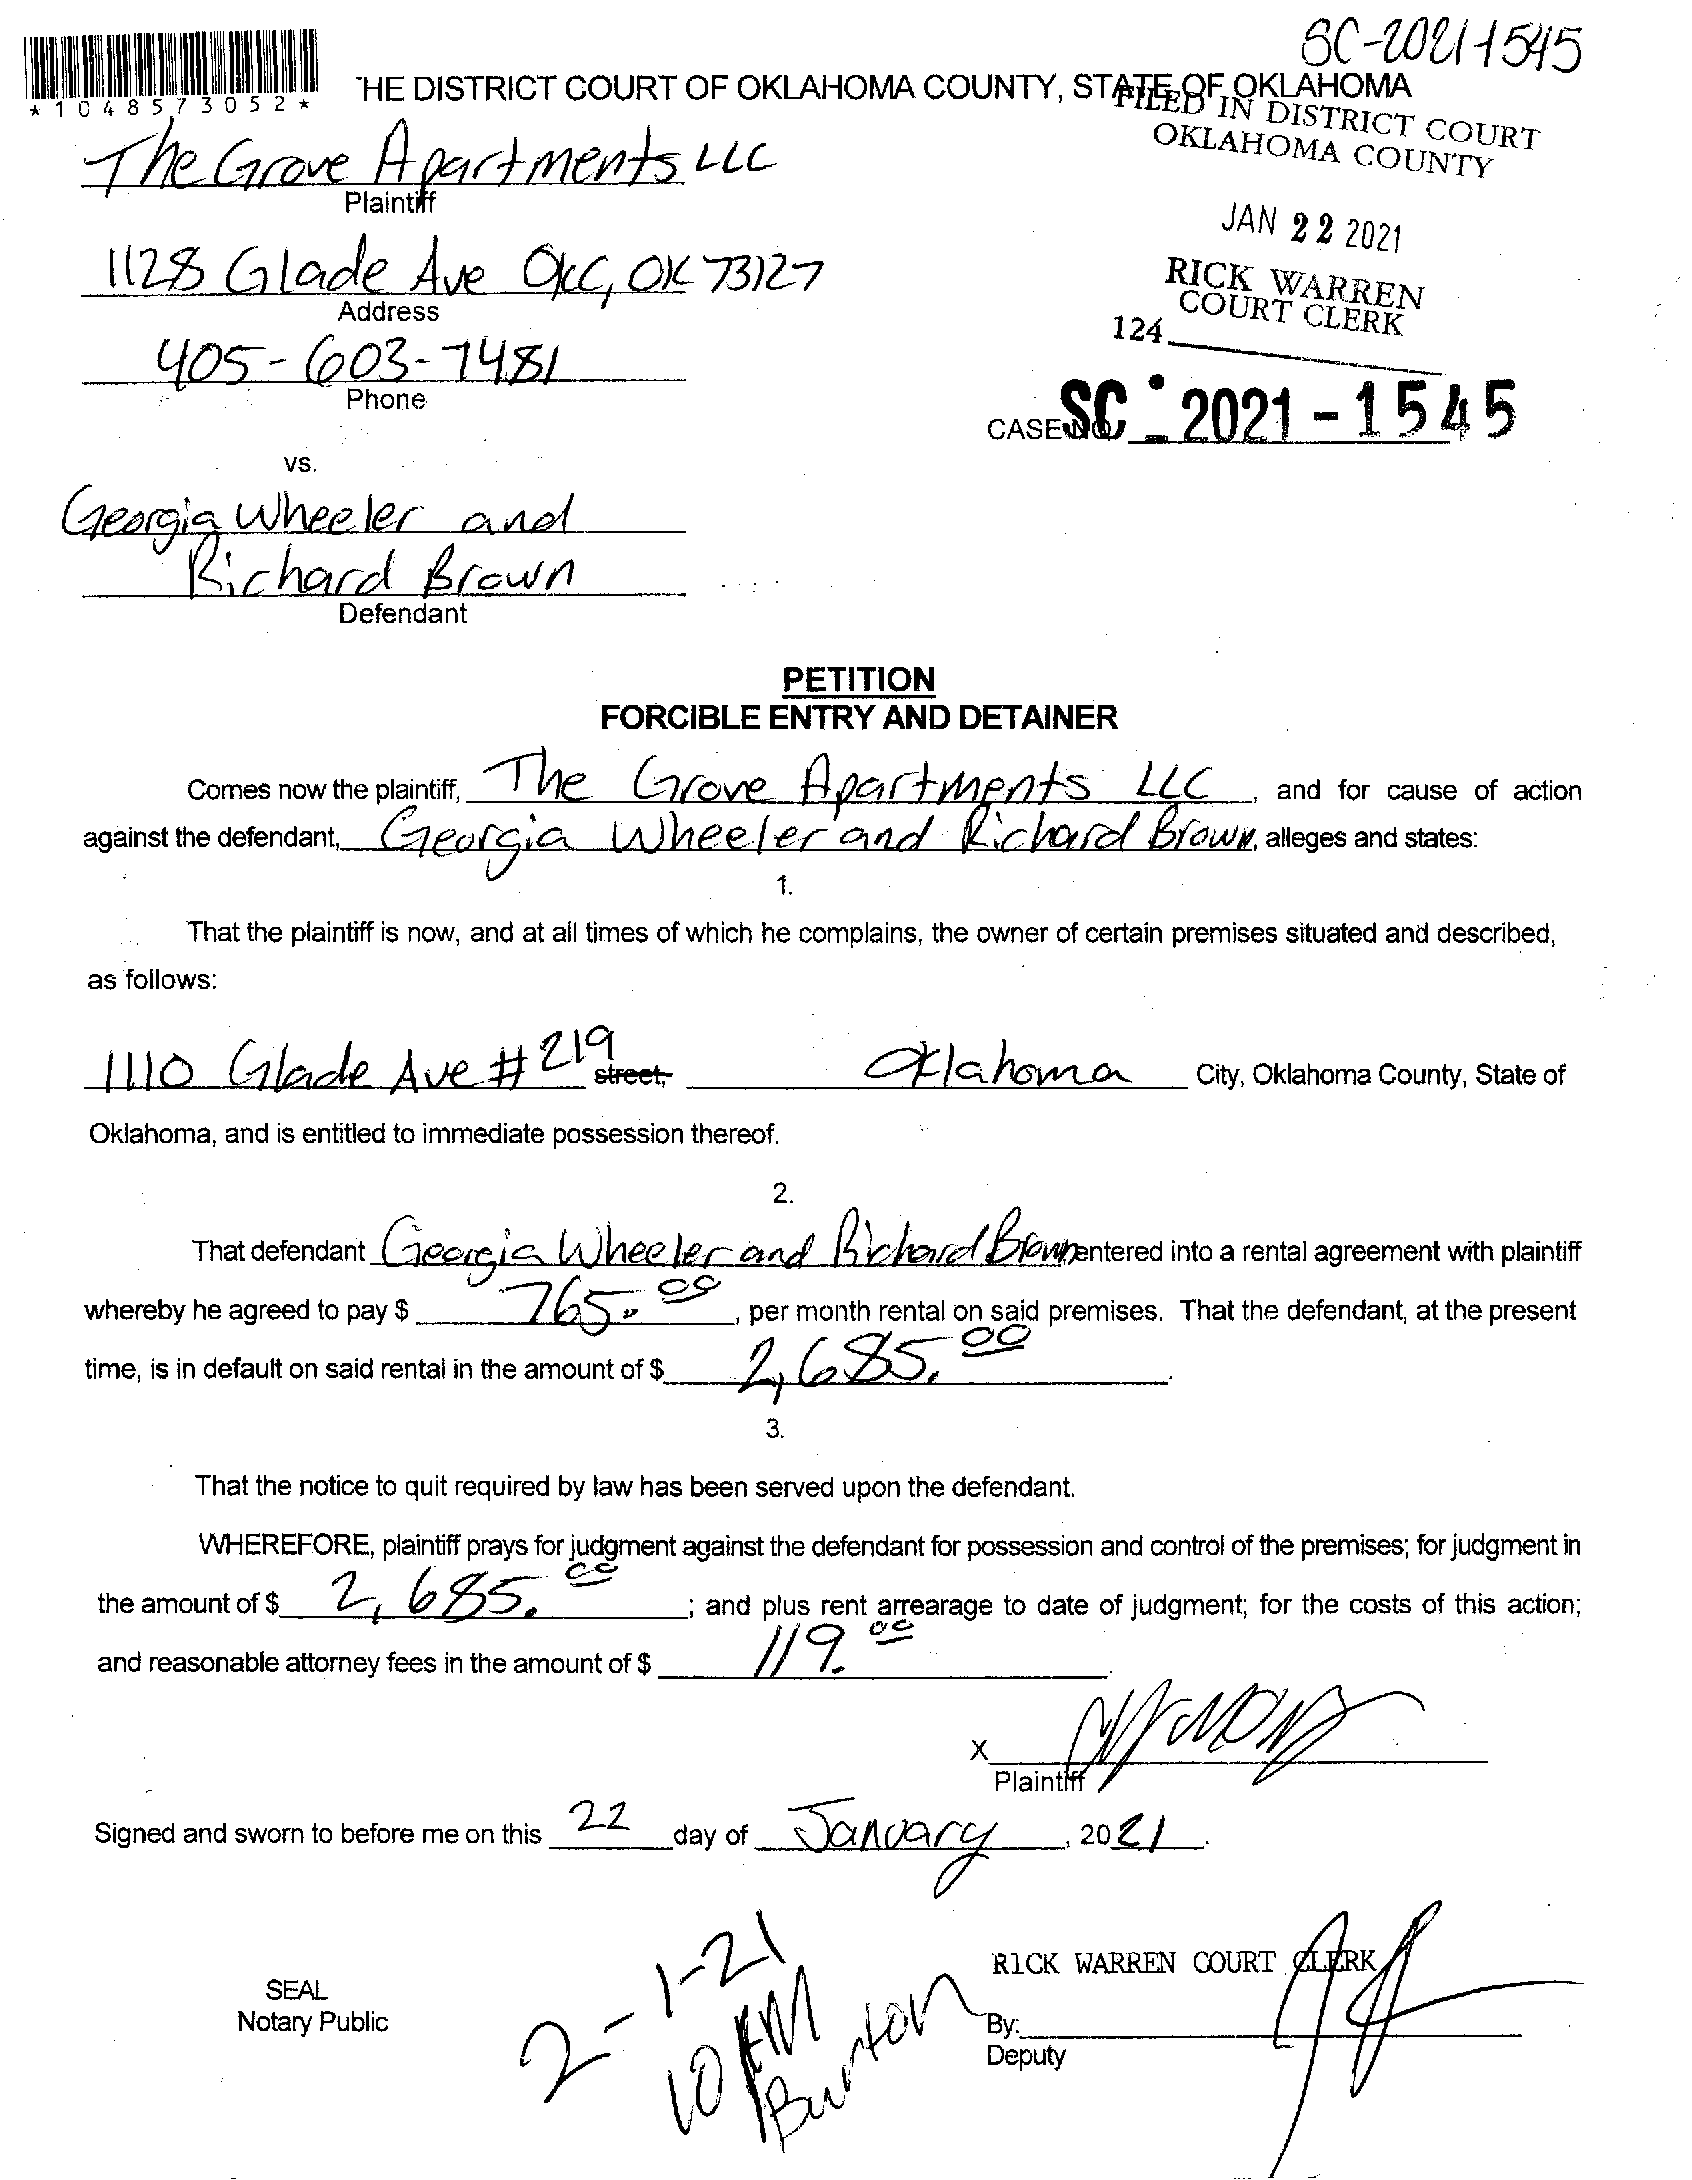 SC-2021-1545
*1048573052*
THE DISTRICT COURT OF OKLAHOMA COUNTY, STATE OF OKLAHOMA
FILED IN DISTRICT COURT
OKLAHOMA COUNTY
The Grove Apartments LLC
Plaintiff
JAN 22 2021
1128 Glade Ave OKC, OK 73127
Address
RICK WARREN
COURT CLERK
124
405-603-7481
Phone
CASE NO. SC - 2021 - 1545
vs.
Georgia Wheeler and
Richard Brown
Defendant
PETITION
FORCIBLE ENTRY AND DETAINER
Comes now the plaintiff, The Grove Apartments LLC, and for cause of action
against the defendant, Georgia Wheeler and Richard Brown, alleges and states:
1.
That the plaintiff is now, and at all times of which he complains, the owner of certain premises situated and described,
as follows:
1110 Glade Ave #219 street, Oklahoma City, Oklahoma County, State of
Oklahoma, and is entitled to immediate possession thereof.
2.
That defendant Georgia Wheeler and Richard Brown entered into a rental agreement with plaintiff
whereby he agreed to pay $ 765.00, per month rental on said premises. That the defendant, at the present
time, is in default on said rental in the amount of $ 2,685.00.
3.
That the notice to quit required by law has been served upon the defendant.
WHEREFORE, plaintiff prays for judgment against the defendant for possession and control of the premises; for judgment in
the amount of $ 2,685.00; and plus rent arrearage to date of judgment; for the costs of this action;
and reasonable attorney fees in the amount of $ 119.00.
X
Plaintiff
Signed and sworn to before me on this 22 day of January, 2021.
2-1-21
10 AM
Burton
RICK WARREN COURT CLERK
SEAL
Notary Public
By:
Deputy